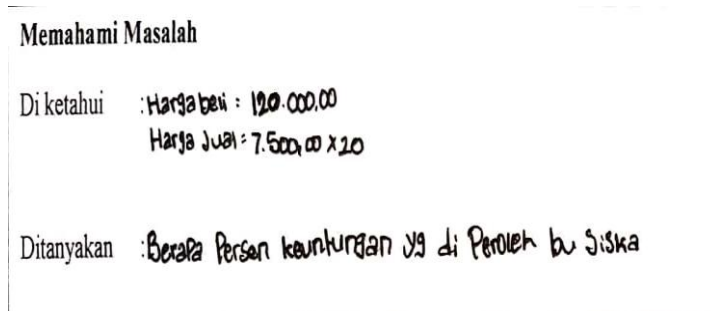 Memahami Masalah
Di ketahui : Harga beli : 120.000,00
Harga Jual : 7.500,00 x 20
Ditanyakan : Berapa Persen keuntungan yg di Peroleh bu Siska